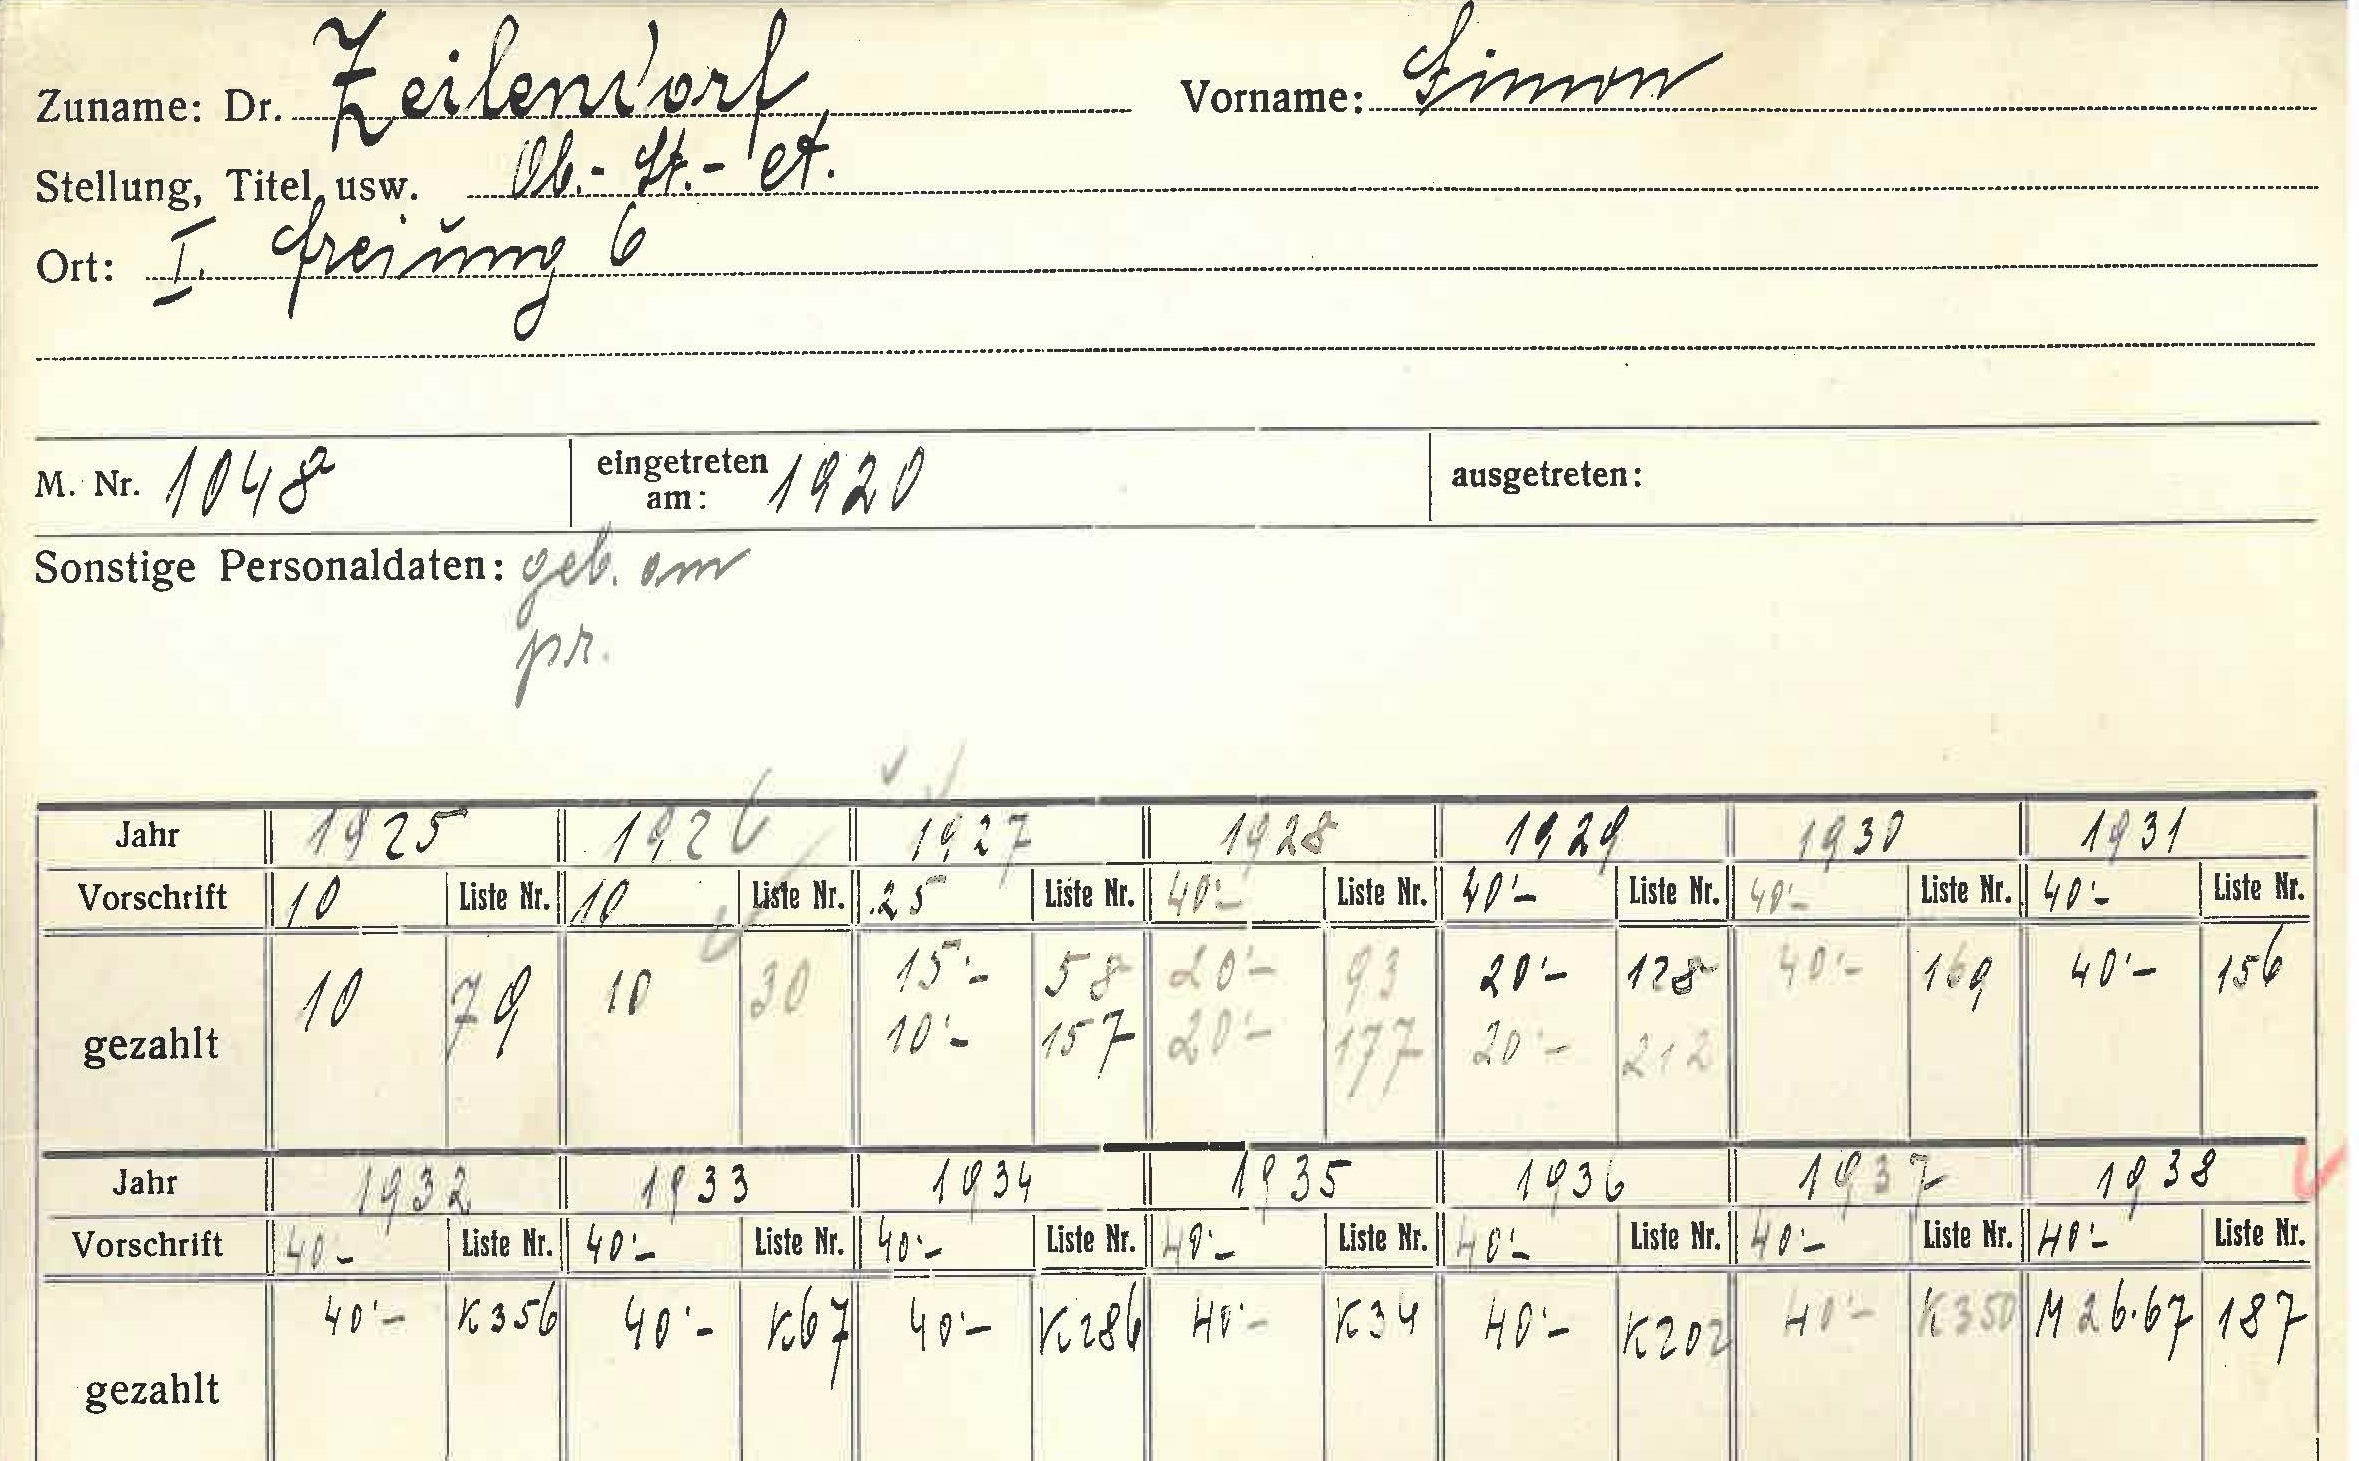 Zuname: Dr. Zeilendorf Vorname: Simon
Stellung, Titel usw. Ob.-St.-
Ort: I. Freiung 6
M. Nr. 1048 eingetreten am: 1920 ausgetreten:
Sonstige Personaldaten: geb. am
pr.
Jahr 1925 1926 1927 1928 1929 1930 1931
Vorschrift 10 Liste Nr. 10 Liste Nr. 25 Liste Nr. 40'- Liste Nr. 40'- Liste Nr. 40'- Liste Nr. 40'- Liste Nr.
10 79 10 30 15'- 58 20'- 93 20'- 128 40'- 169 40'- 156
gezahlt 10'- 157 20'- 177 20'- 212
Jahr 1932 1933 1934 1935 1936 1937 1938
Vorschrift 40- Liste Nr. 40'- Liste Nr. 40'- Liste Nr. 40'- Liste Nr. 40'- Liste Nr. 40'- Liste Nr. 40'- Liste Nr.
40'- K356 40'- K67 40'- K286 40'- K34 40'- K202 40'- K350 M 26.67 187
gezahlt